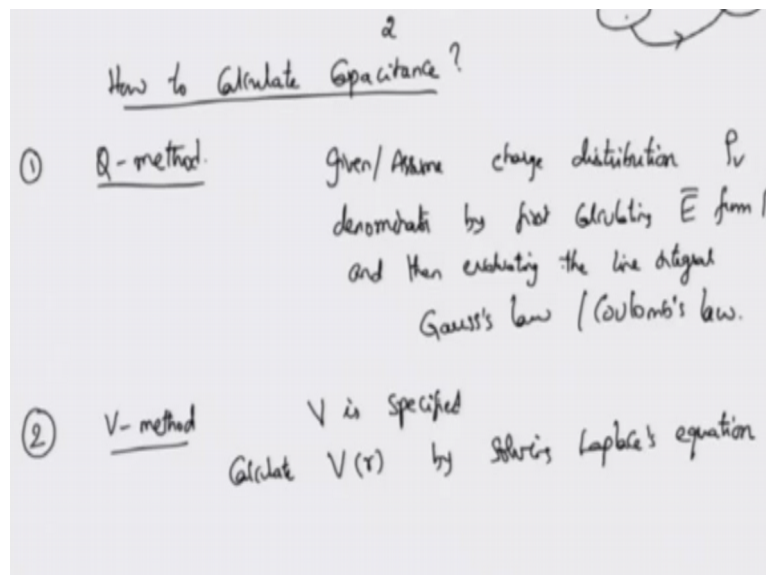 2
How to Calculate Capacitance ?
① Q-method. Given/ Assume charge distribution ρv
denominator by first calculating E̅ from
and then evaluating the line integral
Gauss's law / Coulomb's law.
② V-method V is specified
Calculate V(r) by solving Laplace's equation